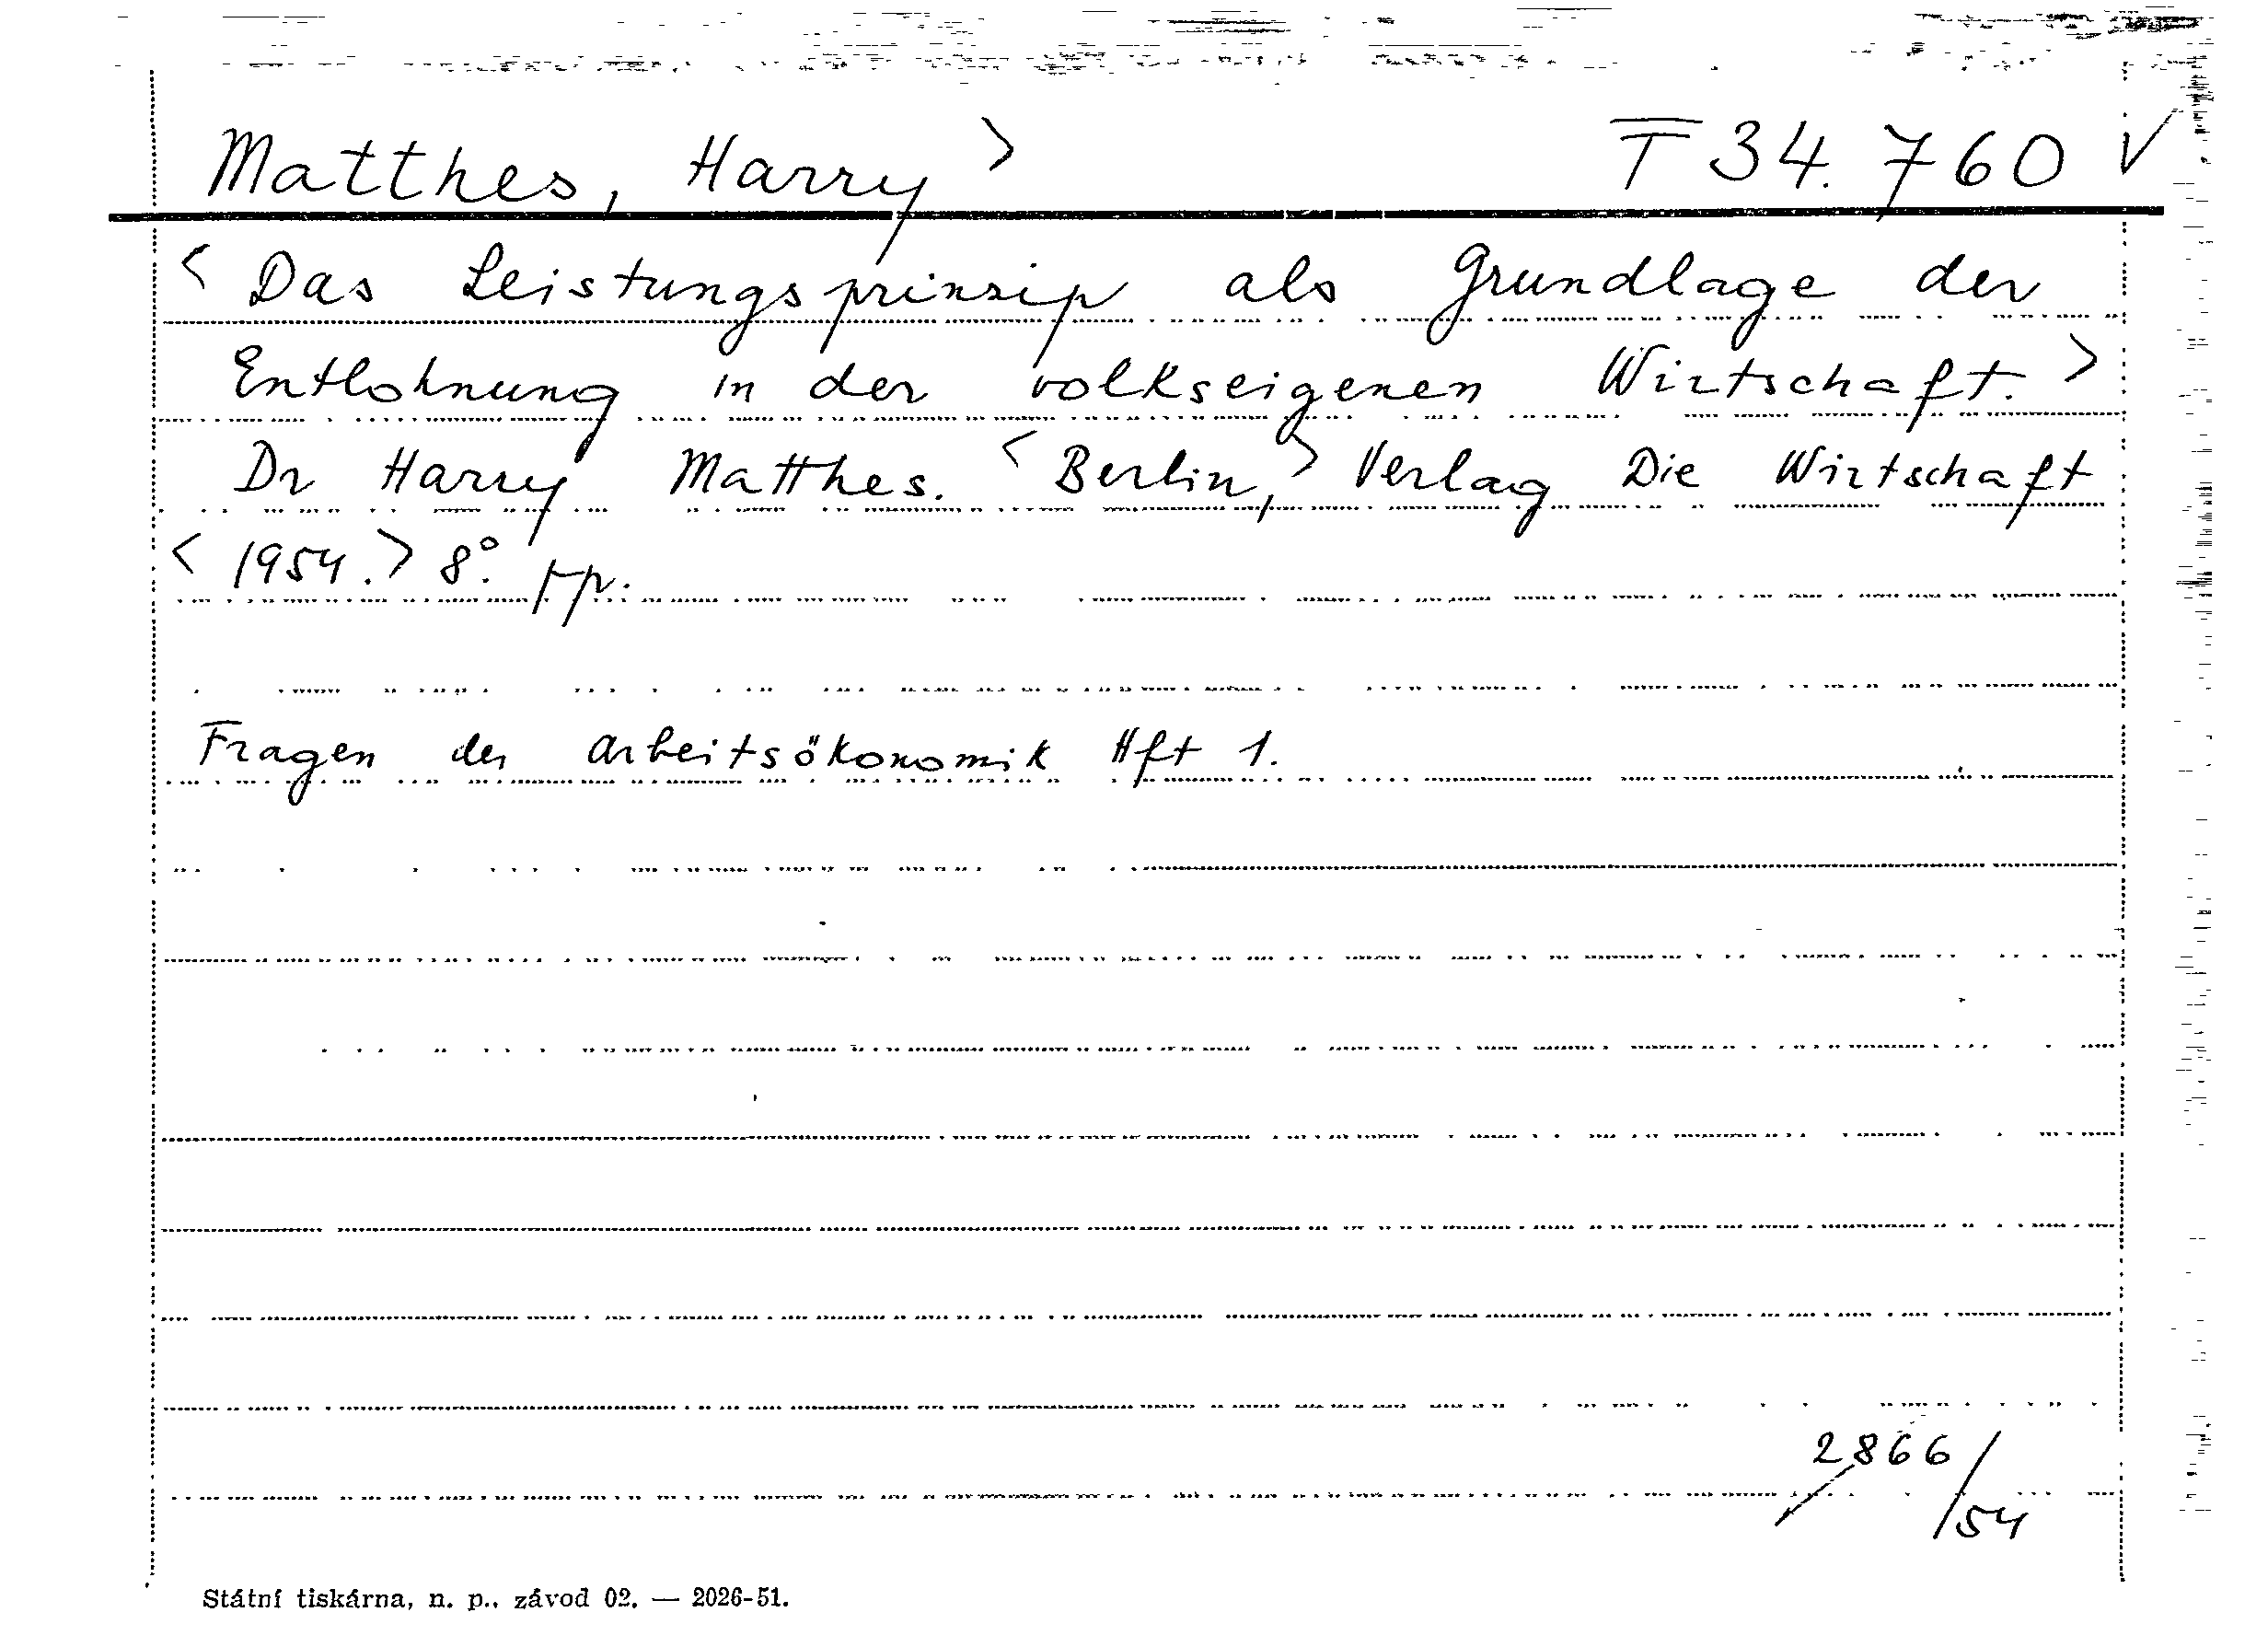 Matthes, Harry > T 34.760 V
< Das Leistungsprinzip als Grundlage der
Entlohnung in der volkseigenen Wirtschaft. >
Dr Harry Matthes. < Berlin, > Verlag Die Wirtschaft
< 1954. > 8°. pp.
Fragen der Arbeitsökonomik Hft 1.
2866/54
Státní tiskárna, n. p., závod 02. — 2026-51.